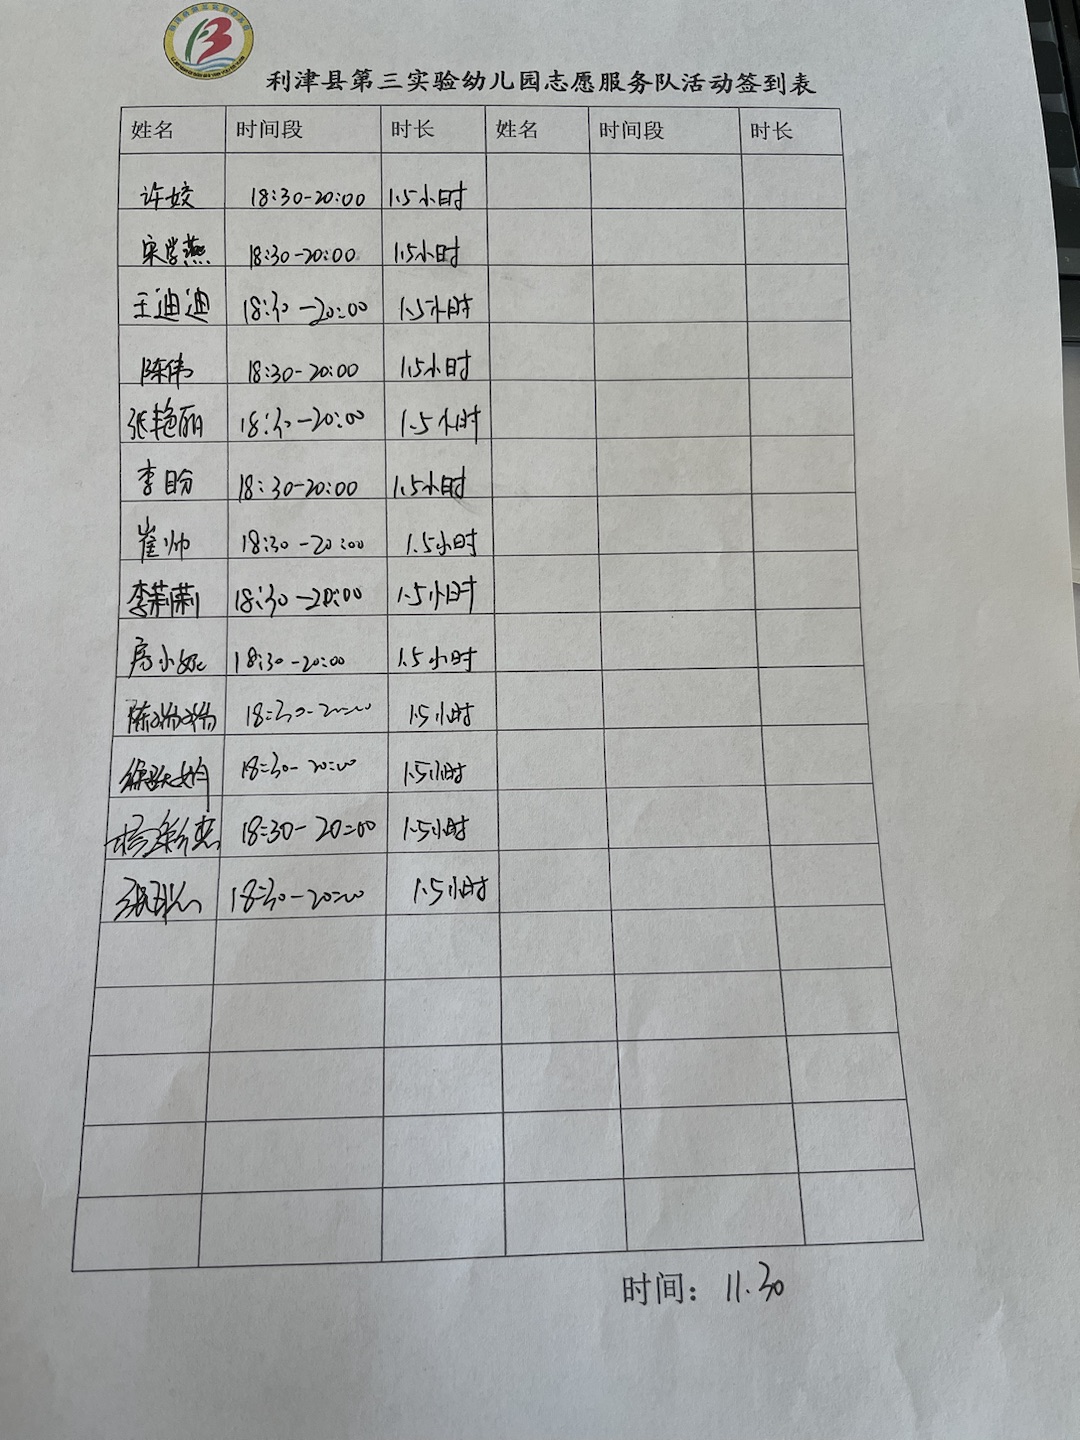 利津县第三实验幼儿园志愿服务队活动签到表
姓名 时间段 时长 姓名 时间段 时长
许姣 18:30-20:00 1.5小时
宋学燕 18:30-20:00 1.5小时
王迪迪 18:30-20:00 1.5小时
陈伟 18:30-20:00 1.5小时
张艳丽 18:30-20:00 1.5小时
李盼 18:30-20:00 1.5小时
崔帅 18:30-20:00 1.5小时
李莉莉 18:30-20:00 1.5小时
房小妮 18:30-20:00 1.5小时
陈 18:30-20:00 1.5小时
徐 18:30-20:00 1.5小时
杨彩 18:30-20:00 1.5小时
18:30-20:00 1.5小时
时间: 11.30